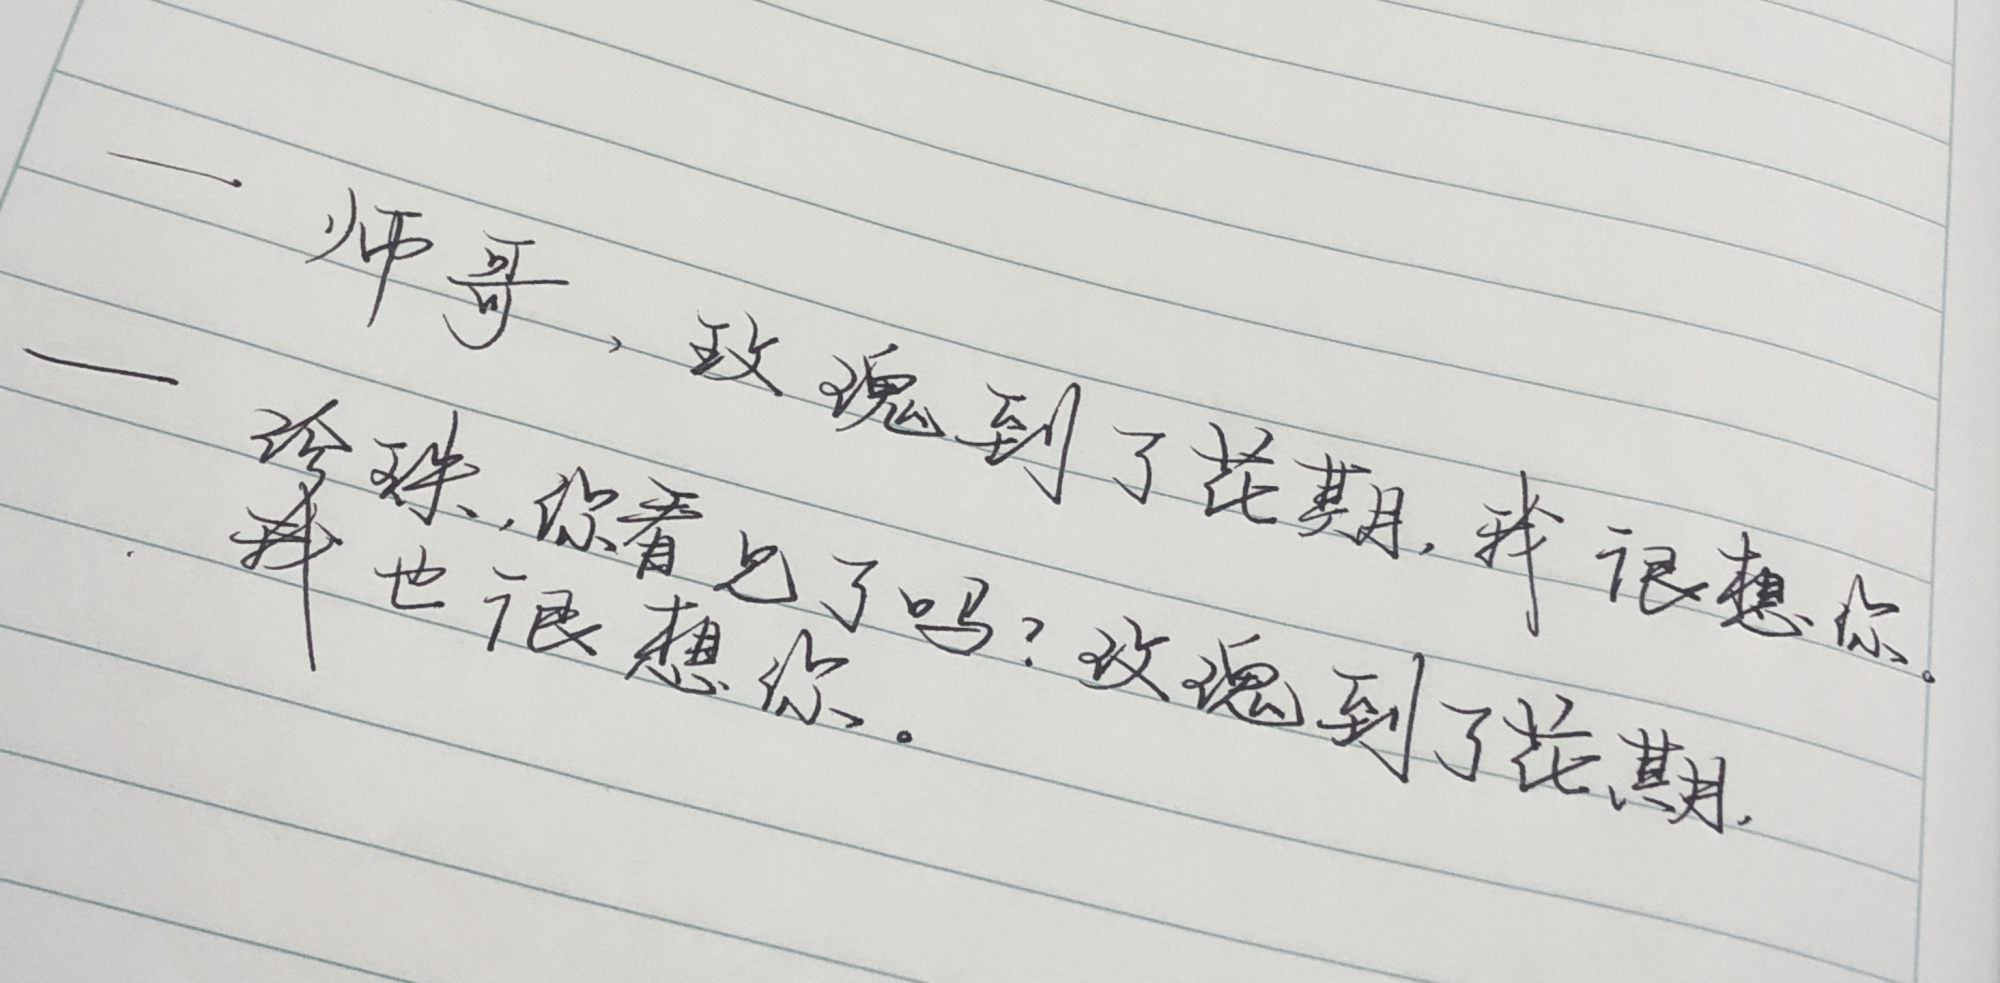 一 师哥，玫瑰到了花期，我很想你。
一 珍珠，你看见了吗？玫瑰到了花期，
我也很想你。